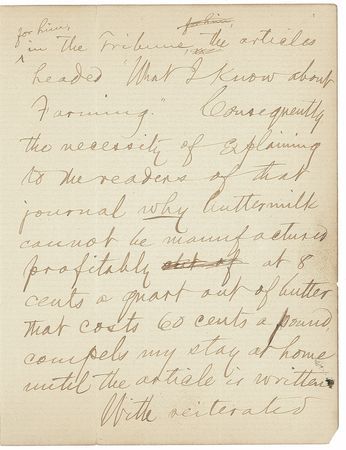 for him,
in the Tribune, the articles
headed "What I know about
Farming." Consequently
the necessity of explaining
to the readers of that
journal why buttermilk
cannot be manufactured
profitably at 8
cents a quart out of butter
that costs 60 cents a pound
compels my stay at home
until the article is written.
With reiterated